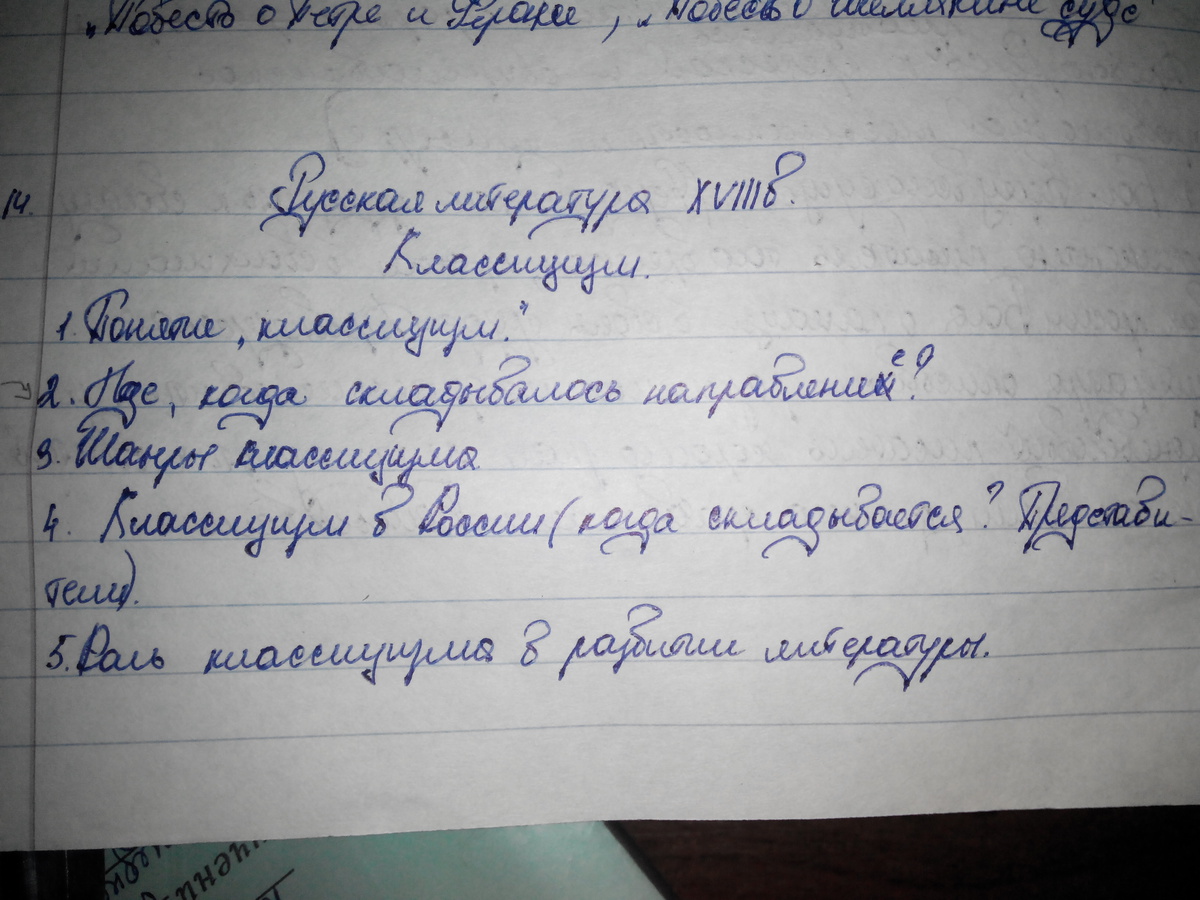 „Повесть о Петре и Февронии", „Повесть о Шемякине суде"
14.
Русская литература XVIII в.
Классицизм.
1. Понятие „классицизм."
2. Где, когда складывалось направление?
3. Жанры классицизма
4. Классицизм в России (когда складывается? Представи-
тели).
5. Роль классицизма в развитии литературы.